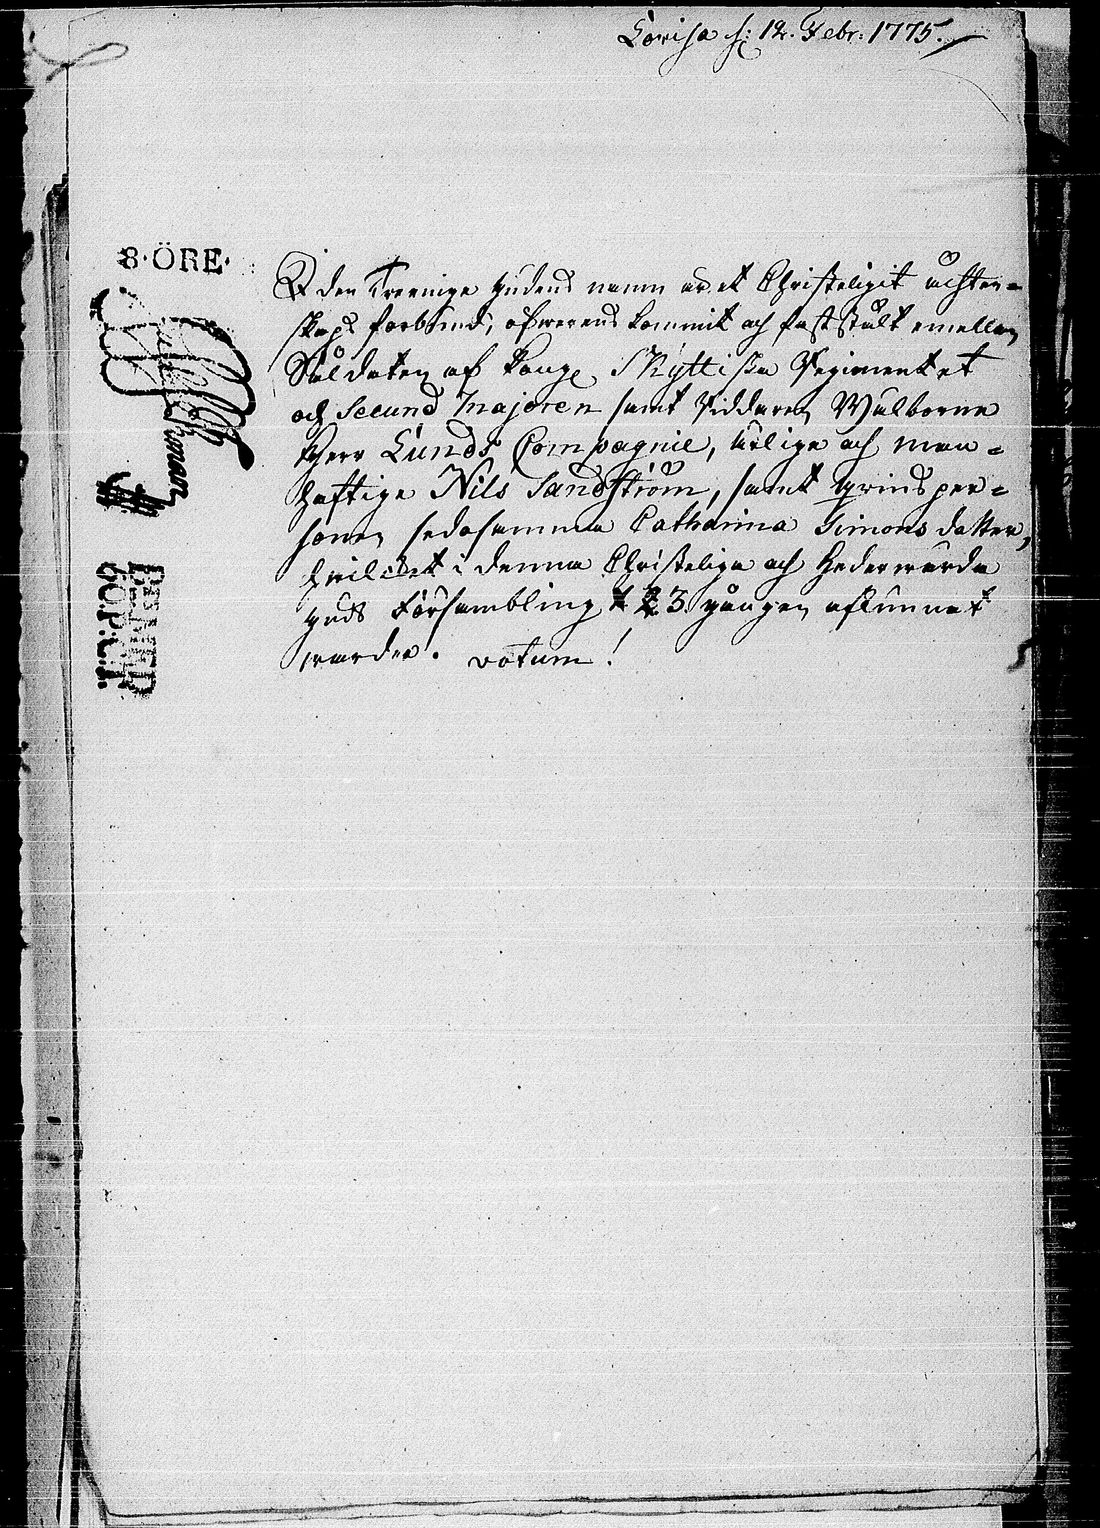 Lovisa d: 12. Febr: 1775.
8·ÖRE·
I den Treenige gudens namn är et Christeligit ächten=
skaps forbund, öfwerens kommit och fastställt emellan
Soldaten af kongl Skyttiska Regimentet
och Secund Majoren samt Riddaren Wälborne
Herr Lunds Compagnie, ärlige och man=
haftige Nils Sandström, samt qwinsper=
sonen sedosamma Catharina Simonsdotter,
hwilcket i denna Christeliga och Hederwärda
guds Försambling 3 gången aflunnet
warder. votum!